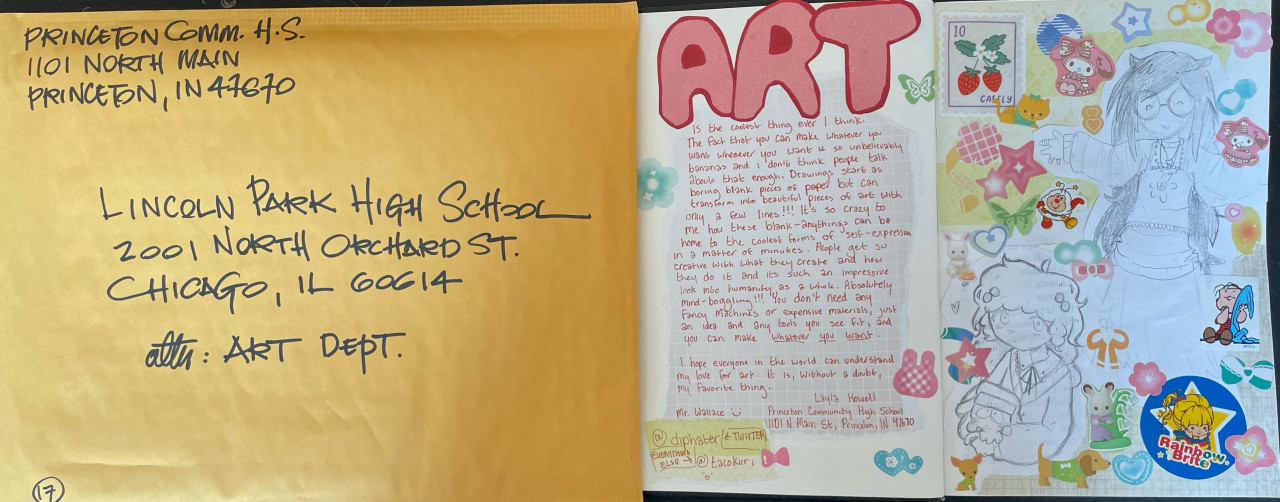 PRINCETON COMM. H.S.
1101 NORTH MAIN
PRINCETON, IN 47670
LINCOLN PARK HIGH SCHOOL
2001 NORTH ORCHARD ST.
CHICAGO, IL 60614
attn: ART DEPT.
17
ART
Is the coolest thing ever I think.
The fact that you can make whatever you
want whenever you want is so unbelievably
bananas and I don't think people talk
about that enough. Drawings start as
boring blank pieces of paper but can
transform into beautiful pieces of art with
only a few lines!!! It's so crazy to
me how these blank-anythings can be
home to the coolest forms of self-expression
in a matter of minutes. People get so
creative with what they create and how
they do it and its such an impressive
look into humanity as a whole. Absolutely
mind-boggling!!! You don't need any
fancy machines or expensive materials, just
an idea and any tools you see fit, and
you can make whatever you want.
I hope everyone in the world can understand
my love for art. It is, without a doubt,
my favorite thing.
Layla Howell
Mr. Wallace :) Princeton Community High School
1101 N Main St, Princeton, IN 47670
@diphater / TWITTER
EVERYTHING
ELSE → @tacokuri
10
Rainbow
Brite